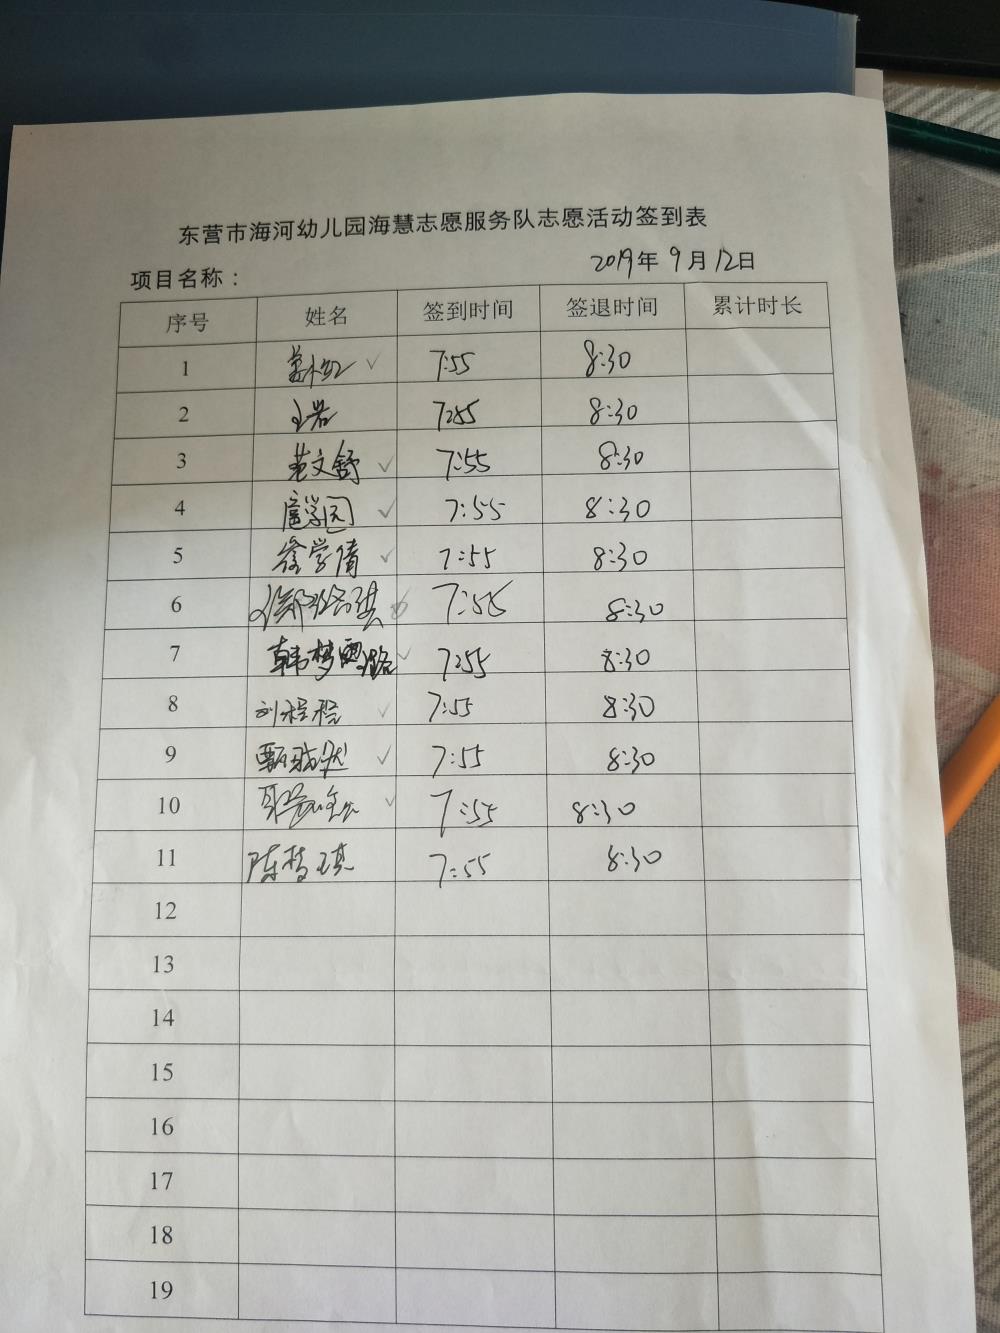 东营市海河幼儿园海慧志愿服务队志愿活动签到表
项目名称： 2019年 9月12日
序号 姓名 签到时间 签退时间 累计时长
1 7:55 8:30
2 王岩 7:55 8:30
3 范文舒 ✓ 7:55 8:30
4 扈学园 ✓ 7:55 8:30
5 徐学倩 ✓ 7:55 8:30
6 7:55 8:30
7 韩梦璐 ✓ 7:55 8:30
8 刘程程 ✓ 7:55 8:30
9 7:55 8:30
10 7:55 8:30
11 陈梦琪 7:55 8:30
12
13
14
15
16
17
18
19